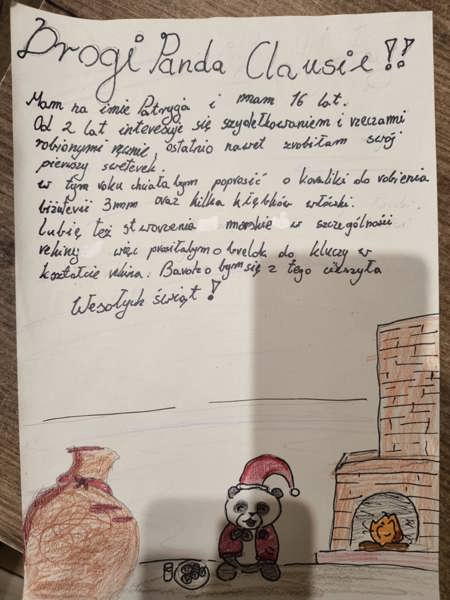 Drogi Panda Clausie!!
Mam na imię Patrycja i mam 16 lat.
Od 2 lat interesuje się szydełkowaniem i rzeczami
robionymi ręcznie, ostatnio nawet zrobiłam swój
pierwszy sweterek.
w tym roku chciałabym poprosić o koraliki do robienia
biżuterii 3mm oraz kilka kłębków włóczki.
Lubię też stworzenia morskie w szczególności
rekiny więc prosiłabym o brelok do kluczy w
kształcie rekina. Bardzo bym się z tego cieszyła
Wesołych świąt!